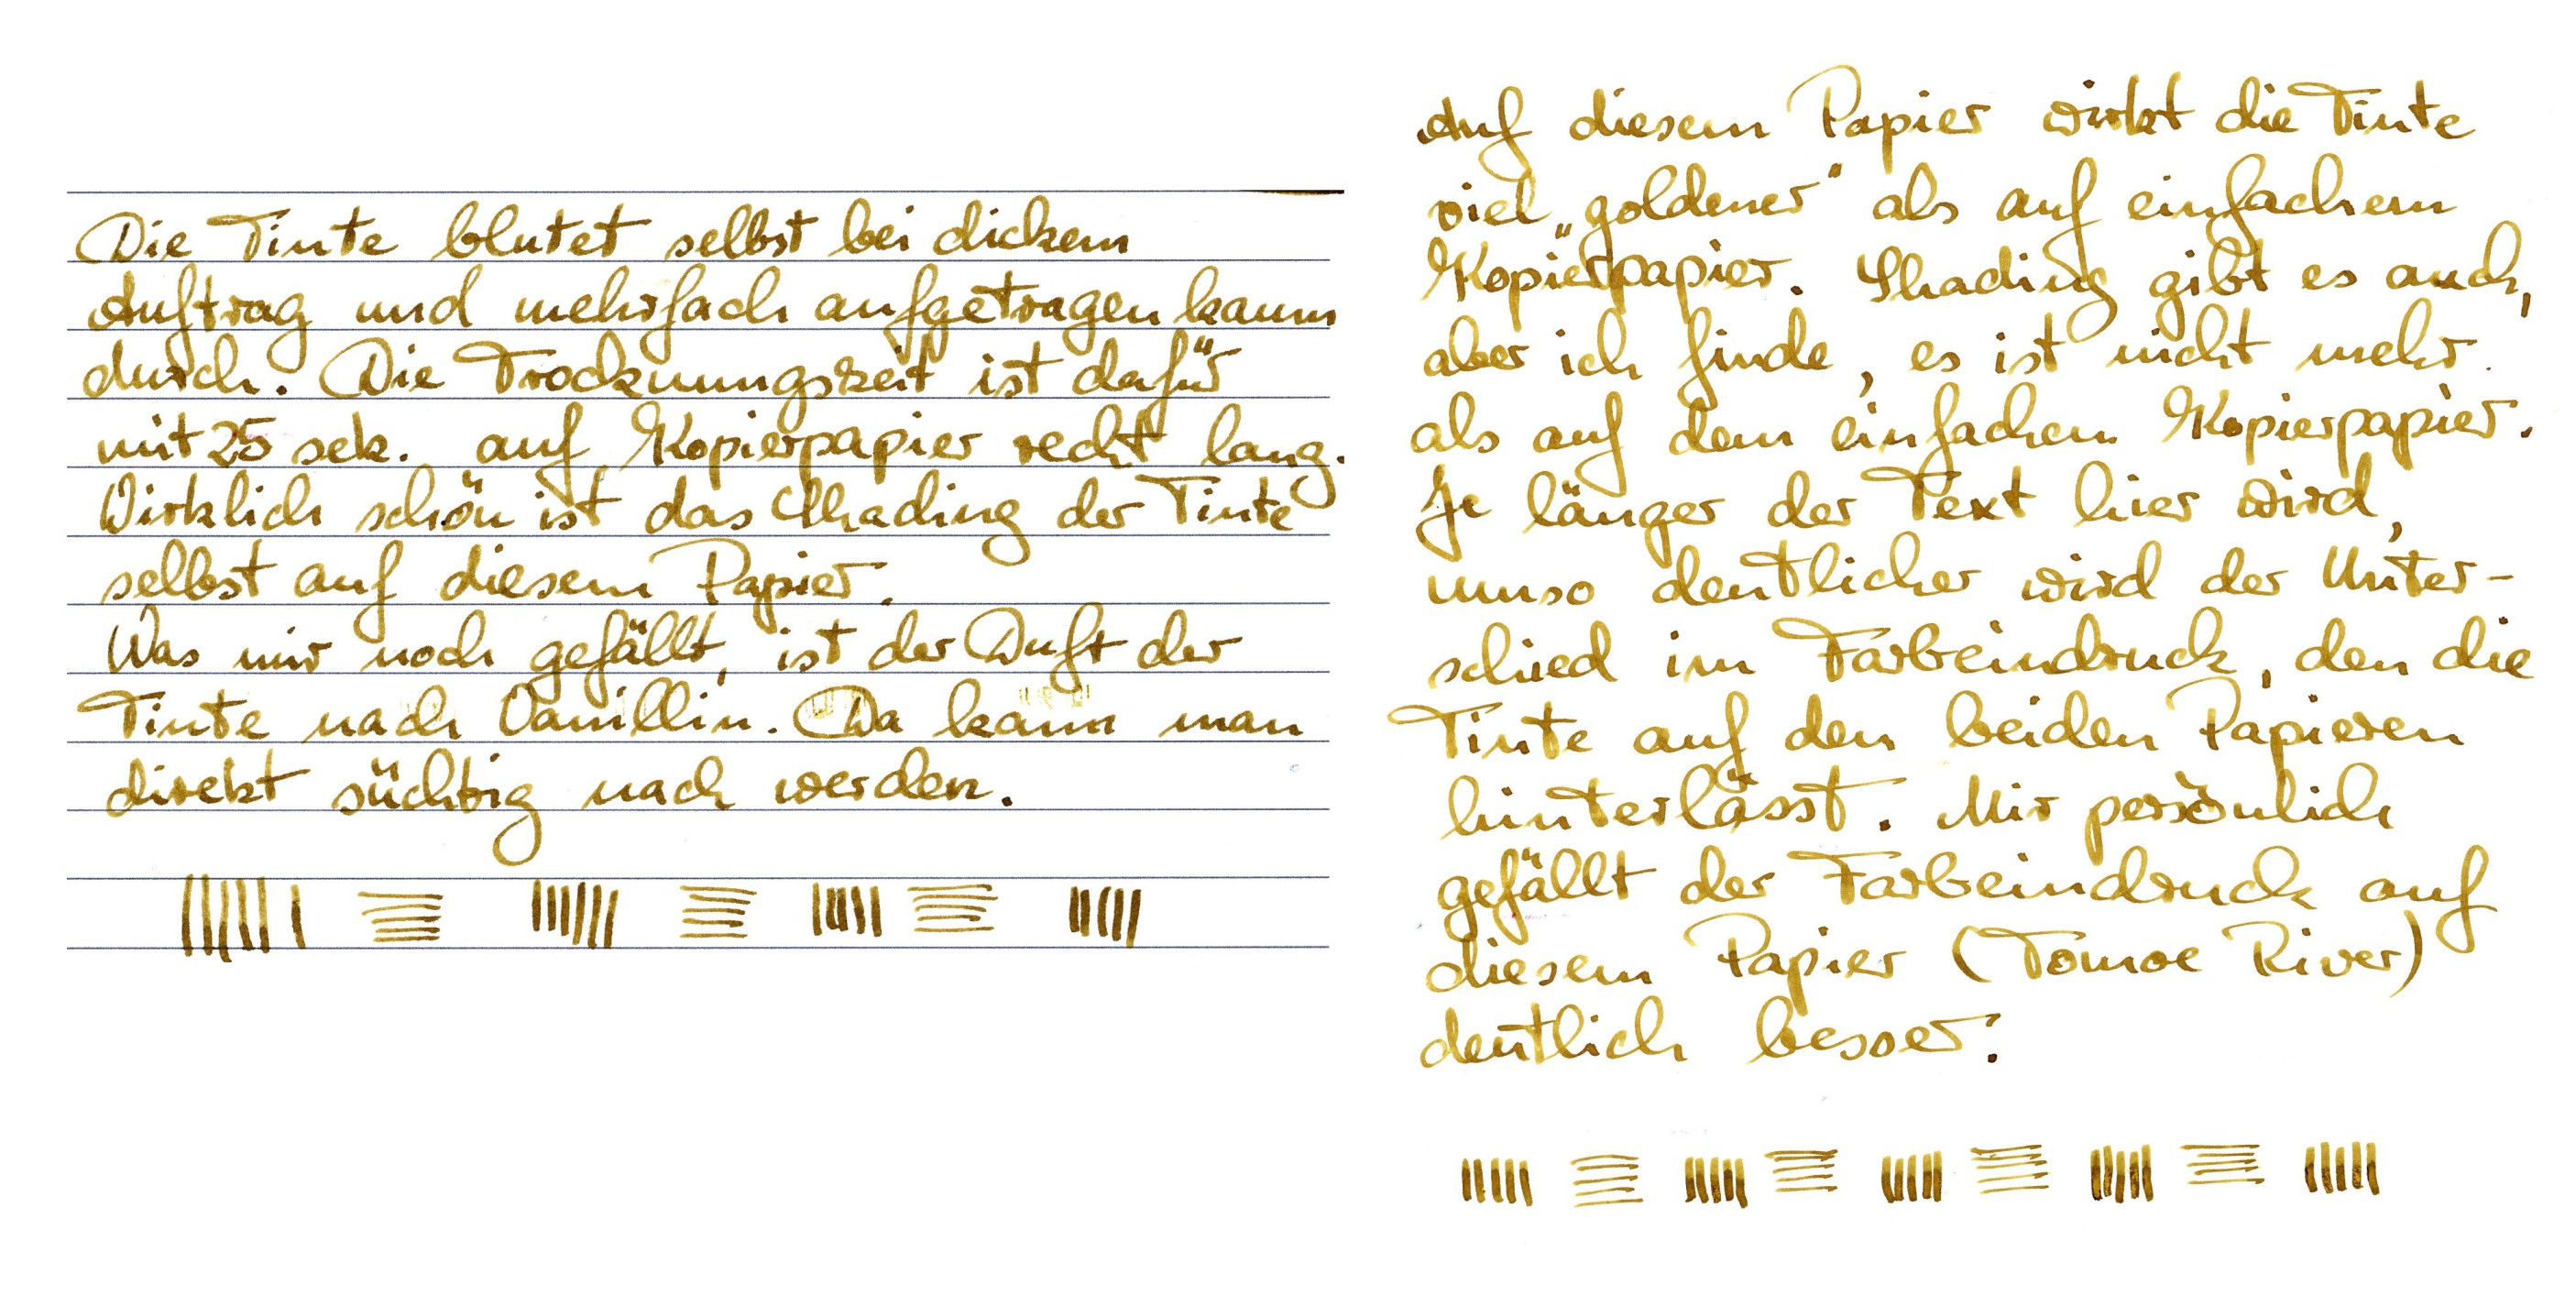 Die Tinte blutet selbst bei dickem
Auftrag und mehrfach aufgetragen kaum
durch. Die Trocknungszeit ist dafür
mit 25 sek. auf Kopierpapier recht lang.
Wirklich schön ist das Shading der Tinte
selbst auf diesem Papier.
Was mir noch gefällt, ist der Duft der
Tinte nach Vanillin. Da kann man
direkt süchtig nach werden.
Auf diesem Papier wirkt die Tinte
viel „goldener“ als auf einfachem
Kopierpapier. Shading gibt es auch,
aber ich finde, es ist nicht mehr
als auf dem einfachen Kopierpapier.
Je länger der Text hier wird,
umso deutlicher wird der Unter-
schied im Farbeindruck, den die
Tinte auf den beiden Papieren
hinterlässt. Mir persönlich
gefällt der Farbeindruck auf
diesem Papier (Tomoe River)
deutlich besser.